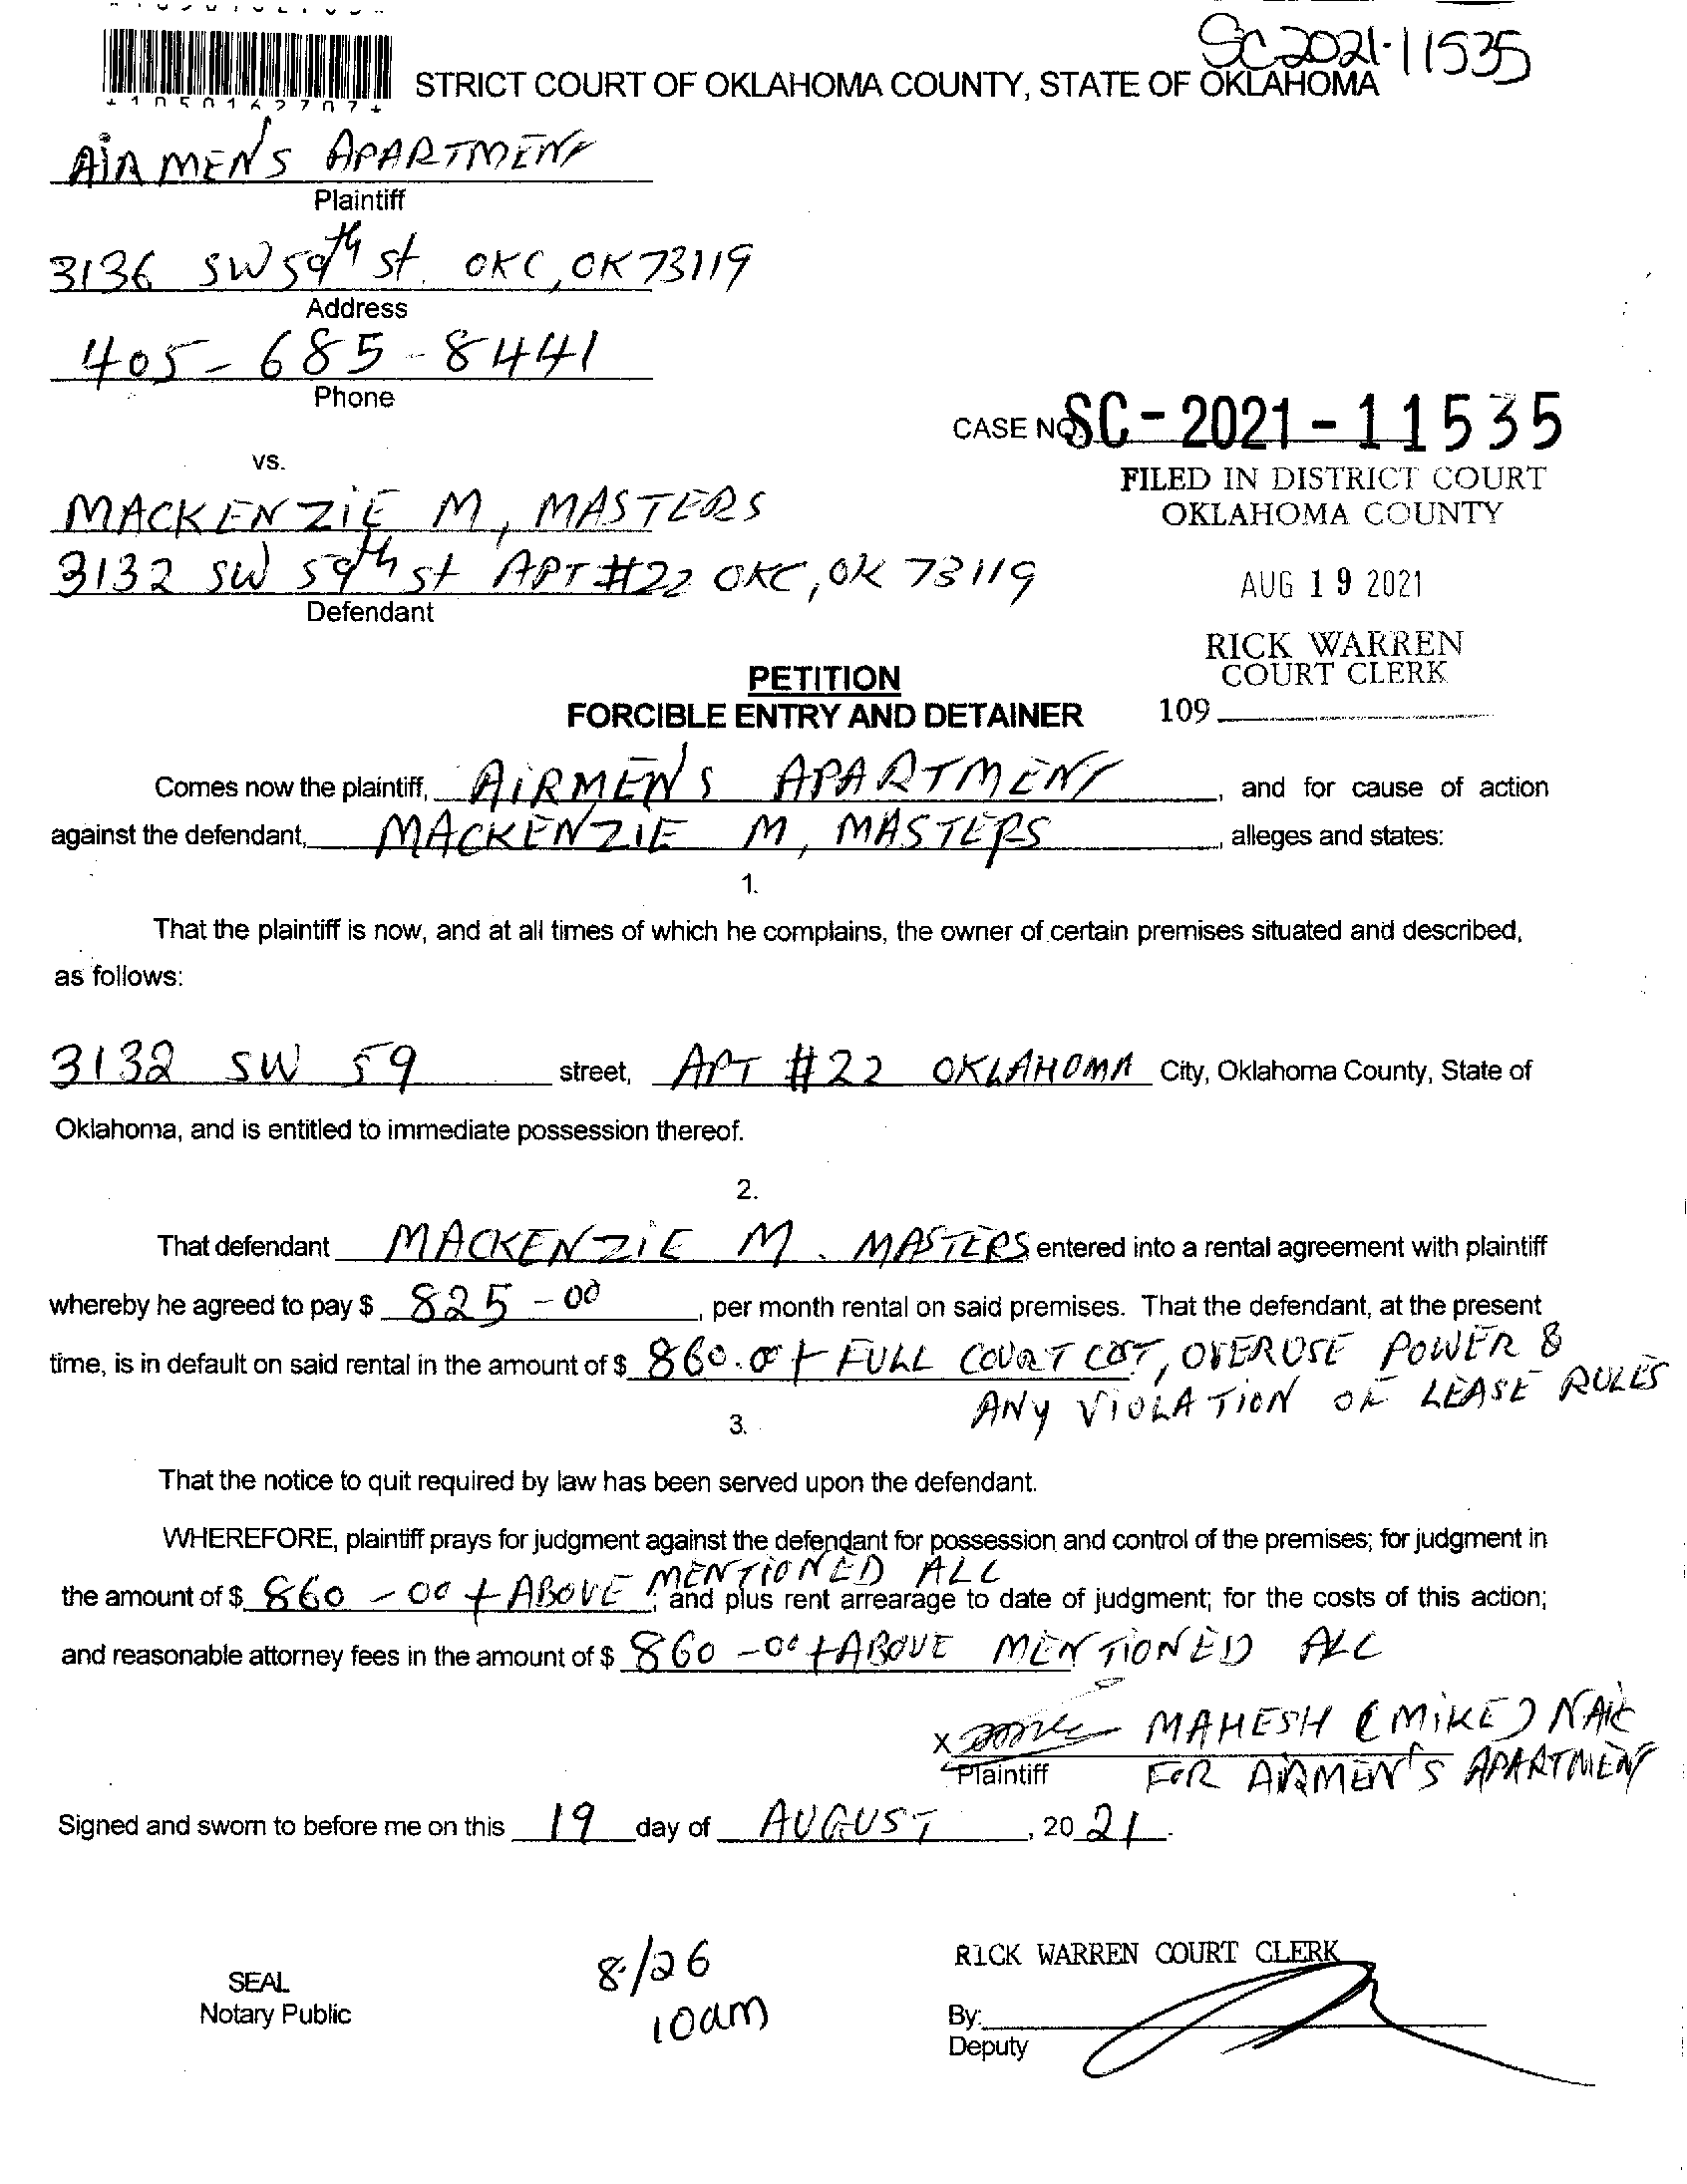 SC2021-11535
STRICT COURT OF OKLAHOMA COUNTY, STATE OF OKLAHOMA
AIRMEN'S APARTMENT
Plaintiff
3136 SW 59th st. OKC, OK 73119
Address
405-685-8441
Phone
CASE NO. SC-2021-11535
vs.
FILED IN DISTRICT COURT
OKLAHOMA COUNTY
MACKENZIE M, MASTERS
3132 SW 59th st APT #22 OKC, OK 73119
Defendant
AUG 19 2021
RICK WARREN
COURT CLERK
109
PETITION
FORCIBLE ENTRY AND DETAINER
Comes now the plaintiff, AIRMEN'S APARTMENT, and for cause of action
against the defendant, MACKENZIE M, MASTERS, alleges and states:
1.
That the plaintiff is now, and at all times of which he complains, the owner of certain premises situated and described,
as follows:
3132 SW 59 street, APT #22 OKLAHOMA City, Oklahoma County, State of
Oklahoma, and is entitled to immediate possession thereof.
2.
That defendant MACKENZIE M. MASTERS entered into a rental agreement with plaintiff
whereby he agreed to pay $ 825-00, per month rental on said premises. That the defendant, at the present
time, is in default on said rental in the amount of $ 860.00 + FULL COURT COST, OVERUSE POWER &
ANY VIOLATION OF LEASE RULES
3.
That the notice to quit required by law has been served upon the defendant.
WHEREFORE, plaintiff prays for judgment against the defendant for possession and control of the premises; for judgment in
the amount of $ 860-00 + ABOVE MENTIONED ALL; and plus rent arrearage to date of judgment; for the costs of this action;
and reasonable attorney fees in the amount of $ 860-00 + ABOVE MENTIONED ALL
X MAHESH (MIKE) NAIK
Plaintiff FOR AIRMEN'S APARTMENT
Signed and sworn to before me on this 19 day of AUGUST, 2021.
8/26
10am
SEAL
Notary Public
RICK WARREN COURT CLERK
By:
Deputy